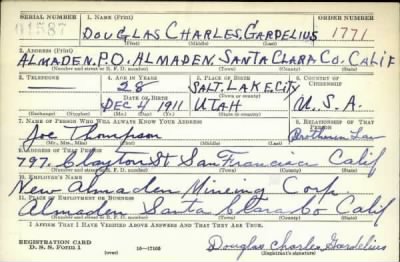 SERIAL NUMBER 1. NAME (Print) ORDER NUMBER
01587 DOUGLAS CHARLES GARDELIUS 1771
(First) (Middle) (Last)
2. ADDRESS (Print)
ALMADEN P.O. ALMADEN, SANTA CLARA CO. CALIF
(Number and street or R. F. D. number) (Town) (County) (State)
3. TELEPHONE 4. AGE IN YEARS 5. PLACE OF BIRTH 6. COUNTRY OF CITIZENSHIP
— 28 SALT LAKE CITY
DATE OF BIRTH (Town or county)
DEC 4 1911 UTAH U.S.A.
(Exchange) (Number) (Mo.) (Day) (Yr.) (State or country)
7. NAME OF PERSON WHO WILL ALWAYS KNOW YOUR ADDRESS 8. RELATIONSHIP OF THAT PERSON
Joe Thompson Brother in Law
(Mr., Mrs., Miss) (First) (Middle) (Last)
9. ADDRESS OF THAT PERSON
797, Clayton St San Francisco Calif
(Number and street or R. F. D. number) (Town) (County) (State)
10. EMPLOYER'S NAME
New Almaden Mineing Corp.
11. PLACE OF EMPLOYMENT OR BUSINESS
Almaden Santa Clara Co Calif
(Number and street or R. F. D. number) (Town) (County) (State)
I AFFIRM THAT I HAVE VERIFIED ABOVE ANSWERS AND THAT THEY ARE TRUE.
REGISTRATION CARD
D. S. S. FORM 1 16—17105 Douglas Charles Gardelius
(over) (Registrant's signature)